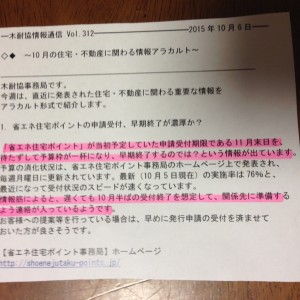 ━━木耐協情報通信 Vol.312━━━━━━━━━━━━━━━━━━━━━
━━━━━━━━━━━━━━━━━━━━2015年10月6日━━━
◇◆ ～10月の住宅・不動産に関わる情報アラカルト～
木耐協事務局です。
今週は、直近に発表された住宅・不動産に関わる重要な情報を
アラカルト形式で紹介します。
1. 省エネ住宅ポイントの申請受付、早期終了が濃厚か？
「省エネ住宅ポイント」が当初予定していた申請受付期限である11月末日を
待たずして予算枠が一杯になり、早期終了するのでは？という情報が出ています。
予算の消化状況は、省エネ住宅ポイント事務局のホームページ上で発表され、
毎週月曜日に更新されています。最新（10月5日現在）の実施率は76％と、
最近になって受付状況のスピードが速くなっています。
情報筋によると、遅くても10月半ばの受付終了を想定して、関係先に準備する
よう連絡が入っているようです。
お客様への提案等を行っている場合は、早めに発行申請の受付を済ませて
おいた方が良さそうです。
【省エネ住宅ポイント事務局】ホームページ
http://shoenejutaku-points.jp/